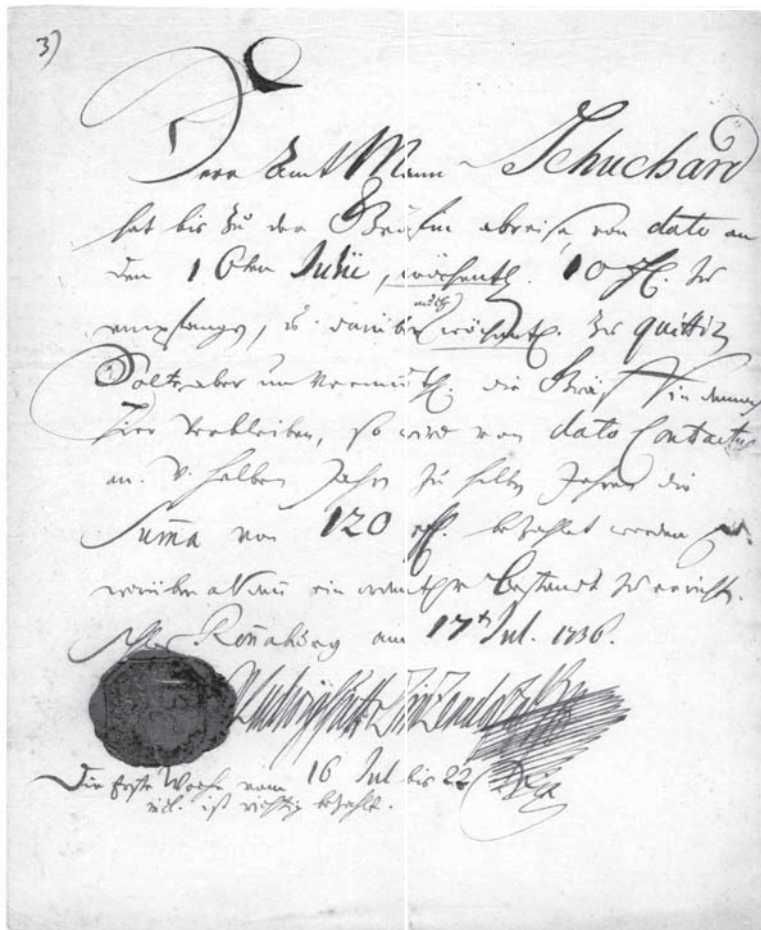 3)
Herr Amt Mann Schuchard
hat bis zu der Gräfin abreise von dato an
den 16ten Julii, wöchentl. 10 zu
empfangen, u. darüber wöchentl. zu quittir
Solte aber die Gräfin
hier verbleiben, so wird von dato Contractus
an. v. halben Jahr zu halben Jahren die
Summa von 120 bezahlet werden
worüber alsdann ein Bestandt zu erricht.
Ronnaburg am 17t Jul. 1736.
Ludwig Zinzendorff
Die erste Woche vom 16 Jul bis 22
incl. ist richtig bezahlt.